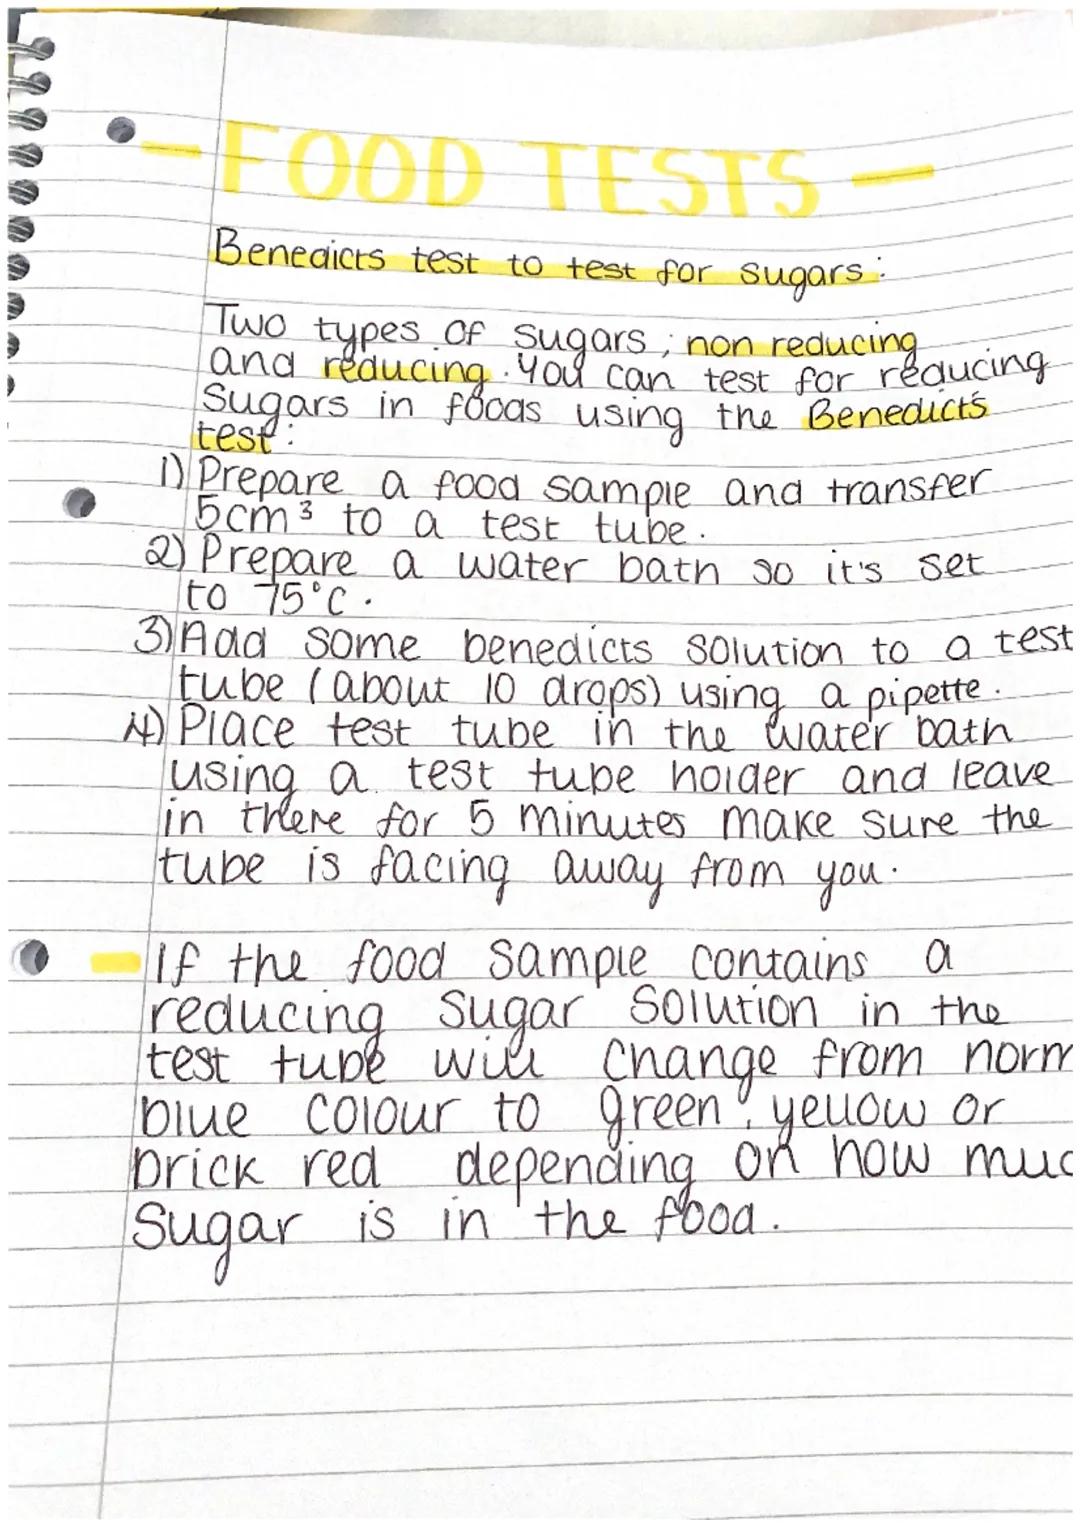 - FOOD TESTS -
Benedicts test to test for sugars:
Two types of sugars; non reducing
and reducing. You can test for reducing
sugars in foods using the Benedict's
test:
1) Prepare a food sample and transfer
5cm³ to a test tube.
2) Prepare a water bath so it's set
to 75°C.
3) Add some benedicts solution to a test
tube (about 10 drops) using a pipette.
4) Place test tube in the water bath
using a test tube holder and leave
in there for 5 minutes make sure the
tube is facing away from you.
- If the food sample contains a
reducing sugar solution in the
test tube will change from norm
blue colour to green, yellow or
brick red depending on how muc
sugar is in the food.